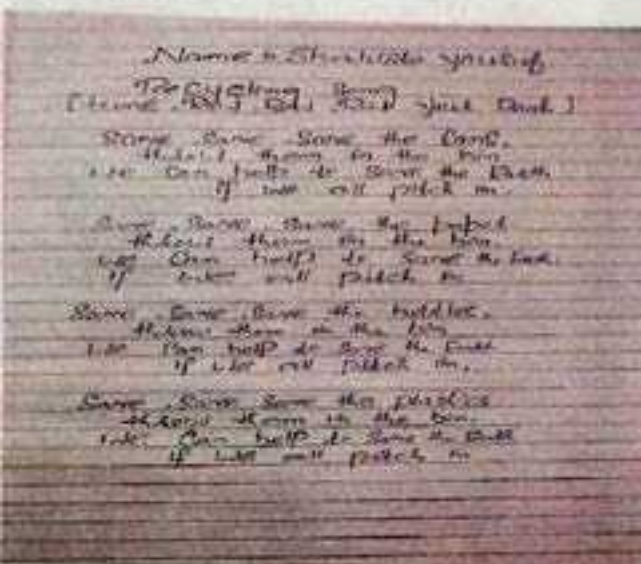 Name :
The Recycling Song
[tune Row Row Row your Boat]
Save Save Save the Cans.
throw them in the bin
we Can help to Save the Earth
If we all pitch in.
Save Save Save the paper
throw them in the bin
we Can help to Save the Earth.
If we all pitch in
Save Save Save the bottles.
throw them in the bin
we Can help to Save the Earth
If we all pitch in.
Save Save Save the plastics
throw them in the bin.
we Can help to Save the Earth
If we all pitch in